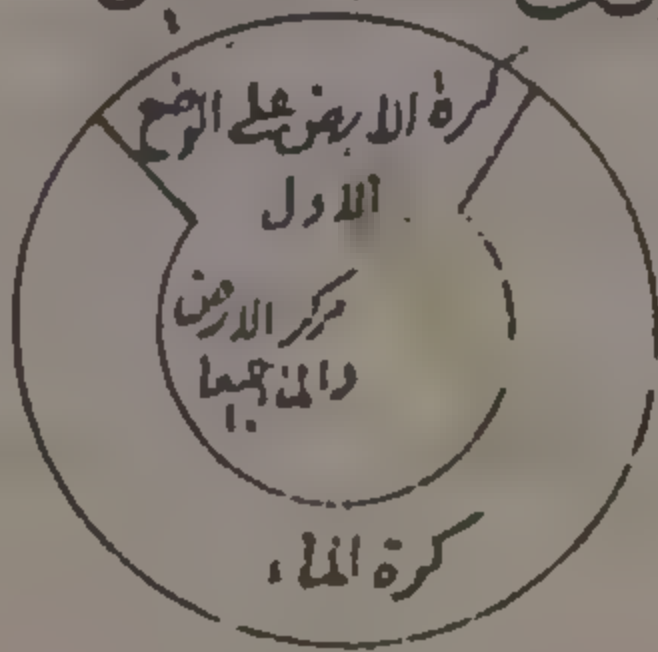 كرة الارض على الوضع
الاول
مركز الارض
والماء جميعا
كرة الماء